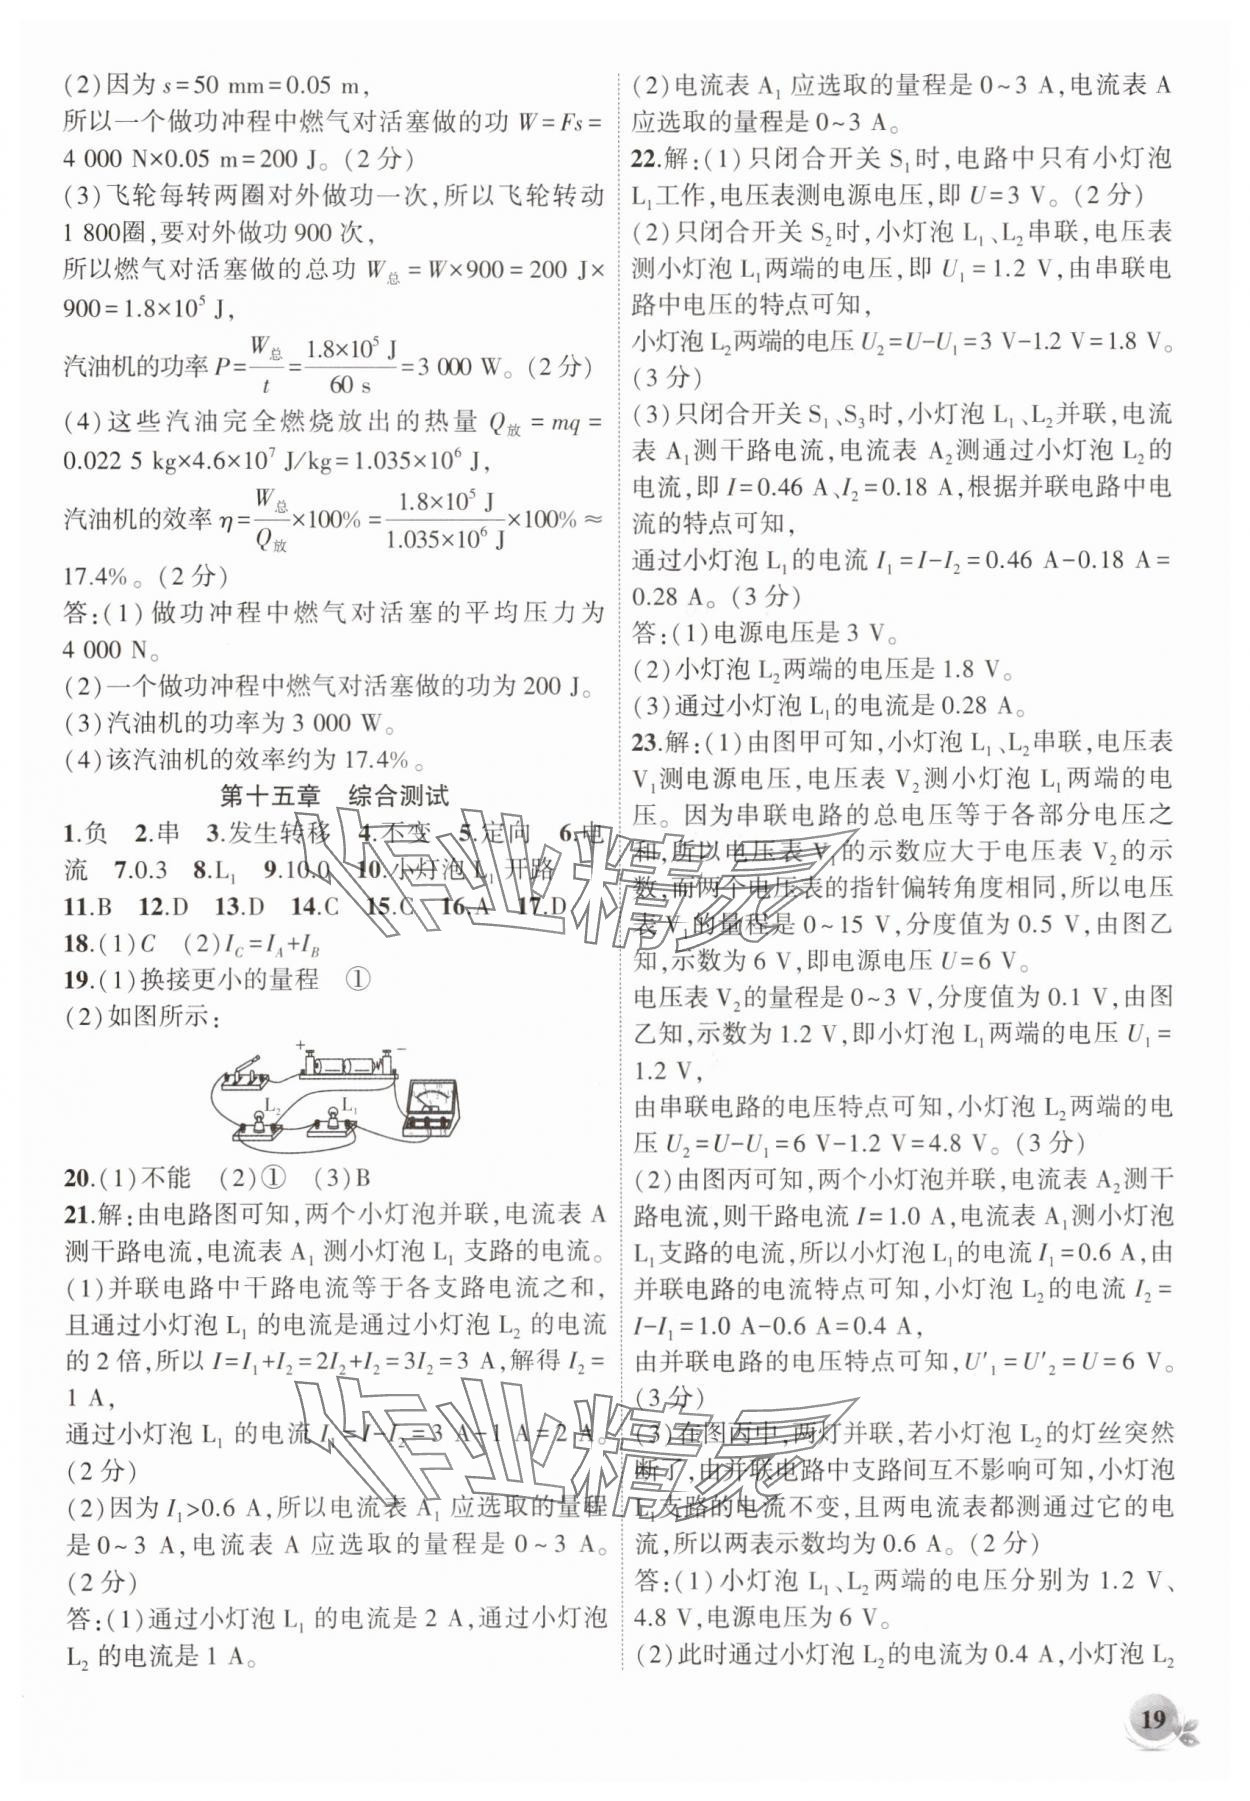 (2)因为 s=50 mm=0.05 m,
所以一个做功冲程中燃气对活塞做的功 W=Fs=
4 000 N×0.05 m=200 J。(2分)
(3)飞轮每转两圈对外做功一次,所以飞轮转动
1 800圈,要对外做功 900 次,
所以燃气对活塞做的总功 W总=W×900=200 J×
900=1.8×10⁵ J,
汽油机的功率 P=W总/t=1.8×10⁵ J/60 s=3 000 W。(2分)
(4)这些汽油完全燃烧放出的热量 Q放=mq=
0.022 5 kg×4.6×10⁷ J/kg=1.035×10⁶ J,
汽油机的效率 η=W总/Q放×100%=1.8×10⁵ J/1.035×10⁶ J×100%≈
17.4%。(2分)
答:(1)做功冲程中燃气对活塞的平均压力为
4 000 N。
(2)一个做功冲程中燃气对活塞做的功为 200 J。
(3)汽油机的功率为 3 000 W。
(4)该汽油机的效率约为 17.4%。
第十五章 综合测试
1.负 2.串 3.发生转移 4.不变 5.定向 6.电
流 7.0.3 8.L₁ 9.10.0 10.小灯泡 L₁ 开路
11.B 12.D 13.D 14.C 15.C 16.A 17.D
18.(1)C (2)I_C=I_A+I_B
19.(1)换接更小的量程 ①
(2)如图所示:
+ −
L₂ L₁
20.(1)不能 (2)① (3)B
21.解:由电路图可知,两个小灯泡并联,电流表 A
测干路电流,电流表 A₁ 测小灯泡 L₁ 支路的电流。
(1)并联电路中干路电流等于各支路电流之和,
且通过小灯泡 L₁ 的电流是通过小灯泡 L₂ 的电流
的 2 倍,所以 I=I₁+I₂=2I₂+I₂=3I₂=3 A,解得 I₂=
1 A,
通过小灯泡 L₁ 的电流 I₁=I-I₂=3 A-1 A=2 A。
(2分)
(2)因为 I₁>0.6 A,所以电流表 A₁ 应选取的量程
是 0~3 A,电流表 A 应选取的量程是 0~3 A。
(2分)
答:(1)通过小灯泡 L₁ 的电流是 2 A,通过小灯泡
L₂ 的电流是 1 A。
(2)电流表 A₁ 应选取的量程是 0~3 A,电流表 A
应选取的量程是 0~3 A。
22.解:(1)只闭合开关 S₁时,电路中只有小灯泡
L₁工作,电压表测电源电压,即 U=3 V。(2分)
(2)只闭合开关 S₂时,小灯泡 L₁、L₂串联,电压表
测小灯泡 L₁两端的电压,即 U₁=1.2 V,由串联电
路中电压的特点可知,
小灯泡 L₂两端的电压 U₂=U-U₁=3 V-1.2 V=1.8 V。
(3分)
(3)只闭合开关 S₁、S₃时,小灯泡 L₁、L₂并联,电流
表 A₁测干路电流,电流表 A₂测通过小灯泡 L₂的
电流,即 I=0.46 A、I₂=0.18 A,根据并联电路中电
流的特点可知,
通过小灯泡 L₁的电流 I₁=I-I₂=0.46 A-0.18 A=
0.28 A。(3分)
答:(1)电源电压是 3 V。
(2)小灯泡 L₂两端的电压是 1.8 V。
(3)通过小灯泡 L₁的电流是 0.28 A。
23.解:(1)由图甲可知,小灯泡 L₁、L₂串联,电压表
V₁测电源电压,电压表 V₂测小灯泡 L₁两端的电
压。因为串联电路的总电压等于各部分电压之
和,所以电压表 V₁的示数应大于电压表 V₂的示
数,而两个电压表的指针偏转角度相同,所以电压
表 V₁的量程是 0~15 V,分度值为 0.5 V,由图乙
知,示数为 6 V,即电源电压 U=6 V。
电压表 V₂的量程是 0~3 V,分度值为 0.1 V,由图
乙知,示数为 1.2 V,即小灯泡 L₁两端的电压 U₁=
1.2 V,
由串联电路的电压特点可知,小灯泡 L₂两端的电
压 U₂=U-U₁=6 V-1.2 V=4.8 V。(3分)
(2)由图丙可知,两个小灯泡并联,电流表 A₂测干
路电流,则干路电流 I=1.0 A,电流表 A₁测小灯泡
L₁支路的电流,所以小灯泡 L₁的电流 I₁=0.6 A,由
并联电路的电流特点可知,小灯泡 L₂的电流 I₂=
I-I₁=1.0 A-0.6 A=0.4 A,
由并联电路的电压特点可知,U′₁=U′₂=U=6 V。
(3分)
(3)在图丙中,两灯并联,若小灯泡 L₂的灯丝突然
断了,由并联电路中支路间互不影响可知,小灯泡
L₁支路的电流不变,且两电流表都测通过它的电
流,所以两表示数均为 0.6 A。(2分)
答:(1)小灯泡 L₁、L₂两端的电压分别为 1.2 V、
4.8 V,电源电压为 6 V。
(2)此时通过小灯泡 L₂的电流为 0.4 A,小灯泡 L₂
19
作业精灵
作业精灵